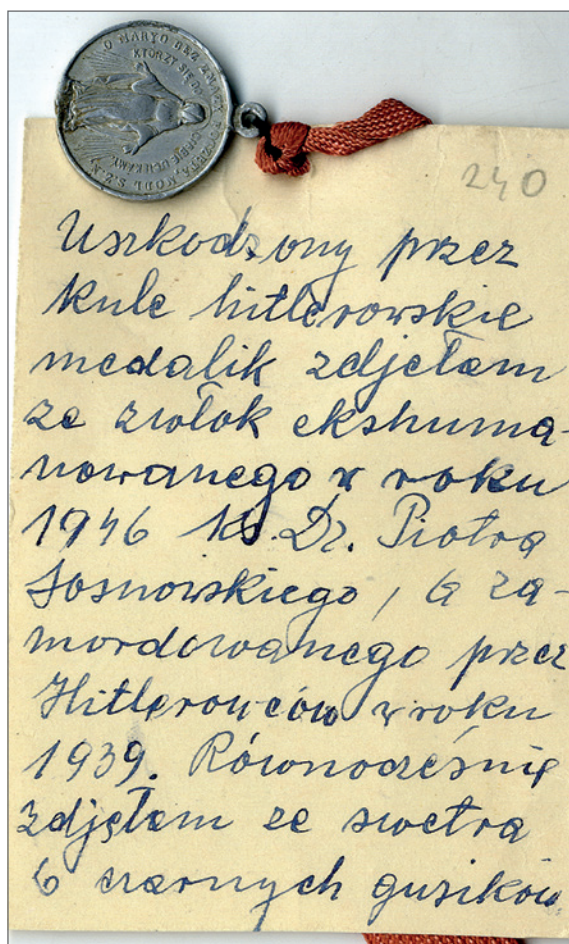 O MARYO BEZ ZMAZY POCZĘTA, MÓDL S.Z.N.
KTÓRZY SIĘ DO CIEBIE UCIEKAMY
240
Uszkodzony przez
kule hitlerowskie
medalik zdjęłam
ze zwłok ekshuma-
nowanego w roku
1946 ks. Dr. Piotra
Sosnowskiego, a za-
mordowanego przez
Hitlerowców w roku
1939. Równocześnie
zdjęłam ze swetra
6 czarnych guzików